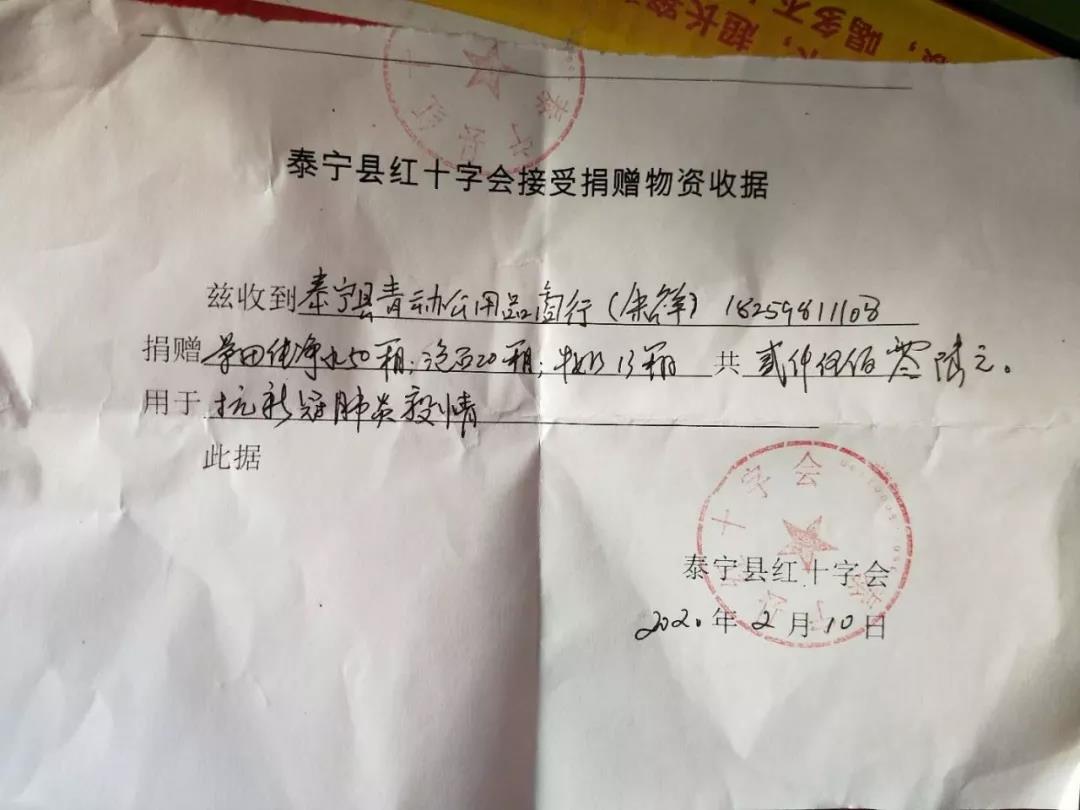 超长
喝多不
泰宁县红十字会接受捐赠物资收据
兹收到泰宁县青动办公用品商行(朱祥)18259811108
捐赠 纯净水50箱;泡面20箱;牛奶13箱 共 贰仟伍佰零陆元。
用于 抗新冠肺炎疫情
此据
十字会
泰宁县红十字会
2020年2月10日